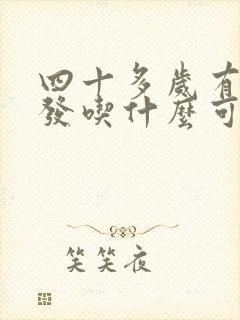 四十多歲有
發喫什麼可
笑笑夜